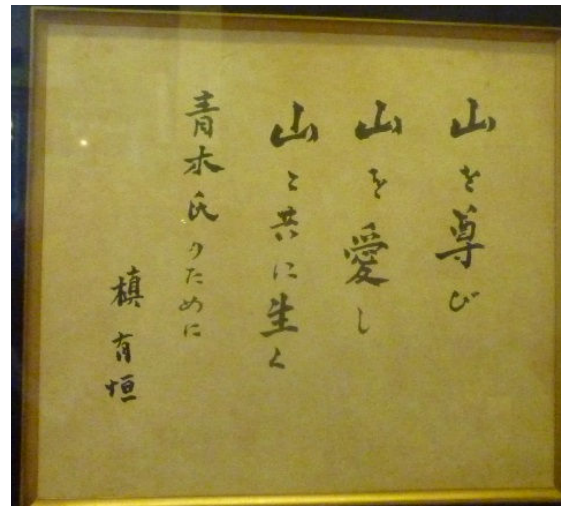 山を尊び
山を愛し
山と共に生く
青木氏のために
槙有恒